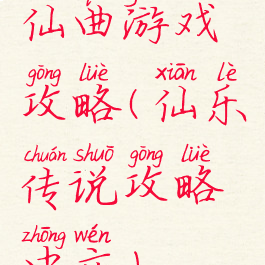 仙曲游戏
gōng lüè xiān lè
攻略(仙乐
chuán shuō gōng lüè
传说攻略
zhōng wén